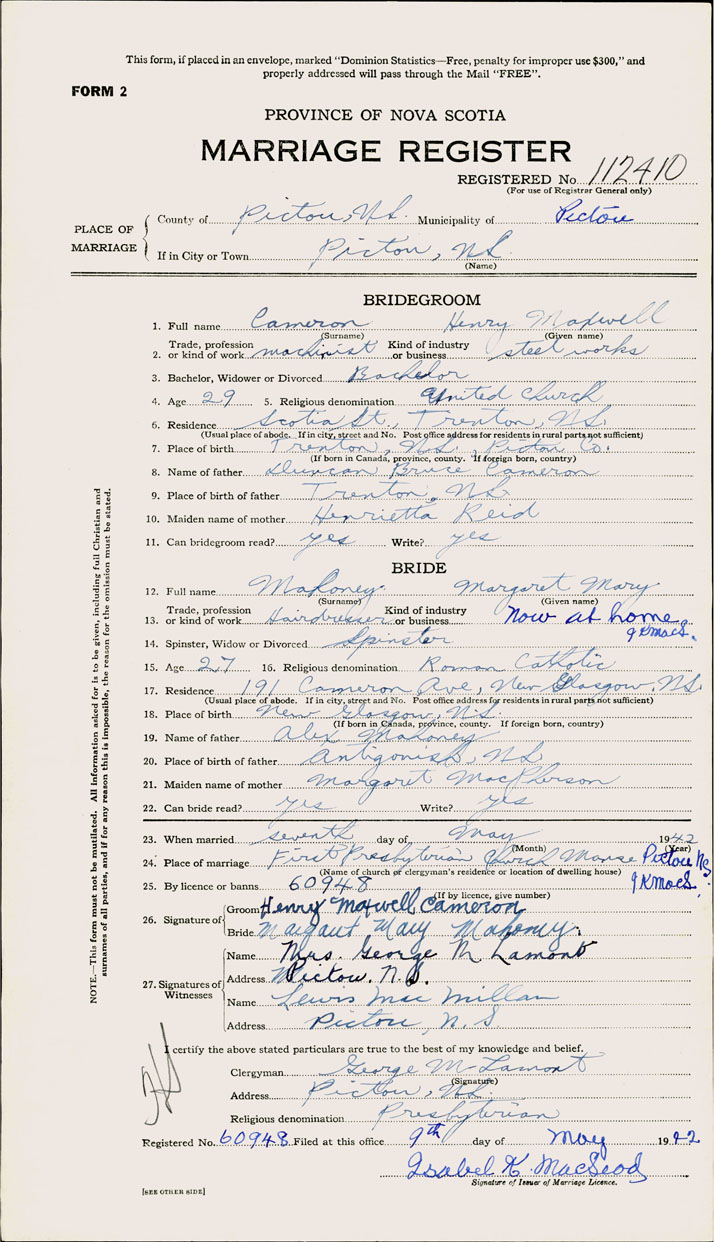 This form, if placed in an envelope, marked "Dominion Statistics—Free, penalty for improper use $300," and
properly addressed will pass through the Mail "FREE".
FORM 2
PROVINCE OF NOVA SCOTIA
MARRIAGE REGISTER
REGISTERED No. 112410
(For use of Registrar General only)
PLACE OF MARRIAGE
County of Pictou, N.S. Municipality of Pictou
If in City or Town Pictou, N.S.
(Name)
BRIDEGROOM
1. Full name Cameron Henry Maxwell
(Surname) (Given name)
2. Trade, profession or kind of work machinist Kind of industry or business steel works
3. Bachelor, Widower or Divorced Bachelor
4. Age 29 5. Religious denomination United Church
6. Residence Scotia St., Trenton, N.S.
(Usual place of abode. If in city, street and No. Post office address for residents in rural parts not sufficient)
7. Place of birth Trenton, N.S., Pictou Co.
(If born in Canada, province, county. If foreign born, country)
8. Name of father Duncan Bruce Cameron
9. Place of birth of father Trenton, N.S.
10. Maiden name of mother Henrietta Reid
11. Can bridegroom read? yes Write? yes
BRIDE
12. Full name Mahoney Margaret Mary
(Surname) (Given name)
13. Trade, profession or kind of work Hairdresser Kind of industry or business Now at home
I K MacS.
14. Spinster, Widow or Divorced Spinster
15. Age 27 16. Religious denomination Roman Catholic
17. Residence 191 Cameron Ave, New Glasgow, N.S.
(Usual place of abode. If in city, street and No. Post office address for residents in rural parts not sufficient)
18. Place of birth New Glasgow, N.S.
(If born in Canada, province, county. If foreign born, country)
19. Name of father Alex Mahoney
20. Place of birth of father Antigonish, N.S.
21. Maiden name of mother Margaret MacPherson
22. Can bride read? yes Write? yes
23. When married seventh day of May 1942
(Month) (Year)
24. Place of marriage First Presbyterian Church Manse Pictou NS
(Name of church or clergyman's residence or location of dwelling house)
I K MacS.
25. By licence or banns 60948
(If by licence, give number)
26. Signature of Groom Henry Maxwell Cameron
Bride Margaret Mary Mahoney
27. Signatures of Witnesses
Name Mrs. George M Lamont
Address Pictou, N.S.
Name Lewis MacMillan
Address Pictou, N.S
I certify the above stated particulars are true to the best of my knowledge and belief.
Clergyman George M Lamont
(Signature)
Address Pictou, N.S.
Religious denomination Presbyterian
Registered No. 60948 Filed at this office 9th day of May 1942
Isabel K. MacLeod
Signature of Issuer of Marriage Licence.
[SEE OTHER SIDE]
NOTE.—This form must not be mutilated. All information asked for is to be given, including full Christian and
surnames of all parties, and if for any reason this is impossible, the reason for the omission must be stated.